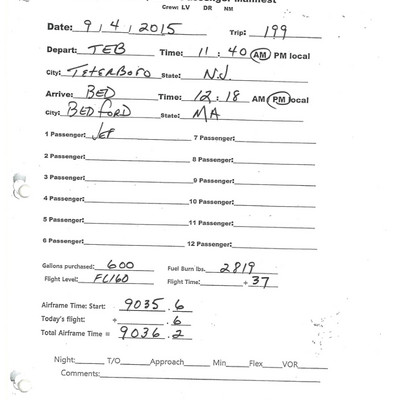 Passenger Manifest
Crew: LV DR NM
Date: 9 / 4 / 2015 Trip: 199
Depart: TEB Time: 11 : 40 AM PM local
City: TETERBORO State: N.J.
Arrive: BED Time: 12 : 18 AM PM local
City: BEDFORD State: MA
1 Passenger: JEF 7 Passenger:
2 Passenger: 8 Passenger:
3 Passenger: 9 Passenger:
4 Passenger: 10 Passenger:
5 Passenger: 11 Passenger:
6 Passenger: 12 Passenger:
Gallons purchased: 600 Fuel Burn lbs. 2819
Flight Level: FL160 Flight Time: + 37
Airframe Time: Start: 9035 . 6
Today's flight: + . 6
Total Airframe Time = 9036 . 2
Night: T/O Approach Min Flex VOR
Comments: